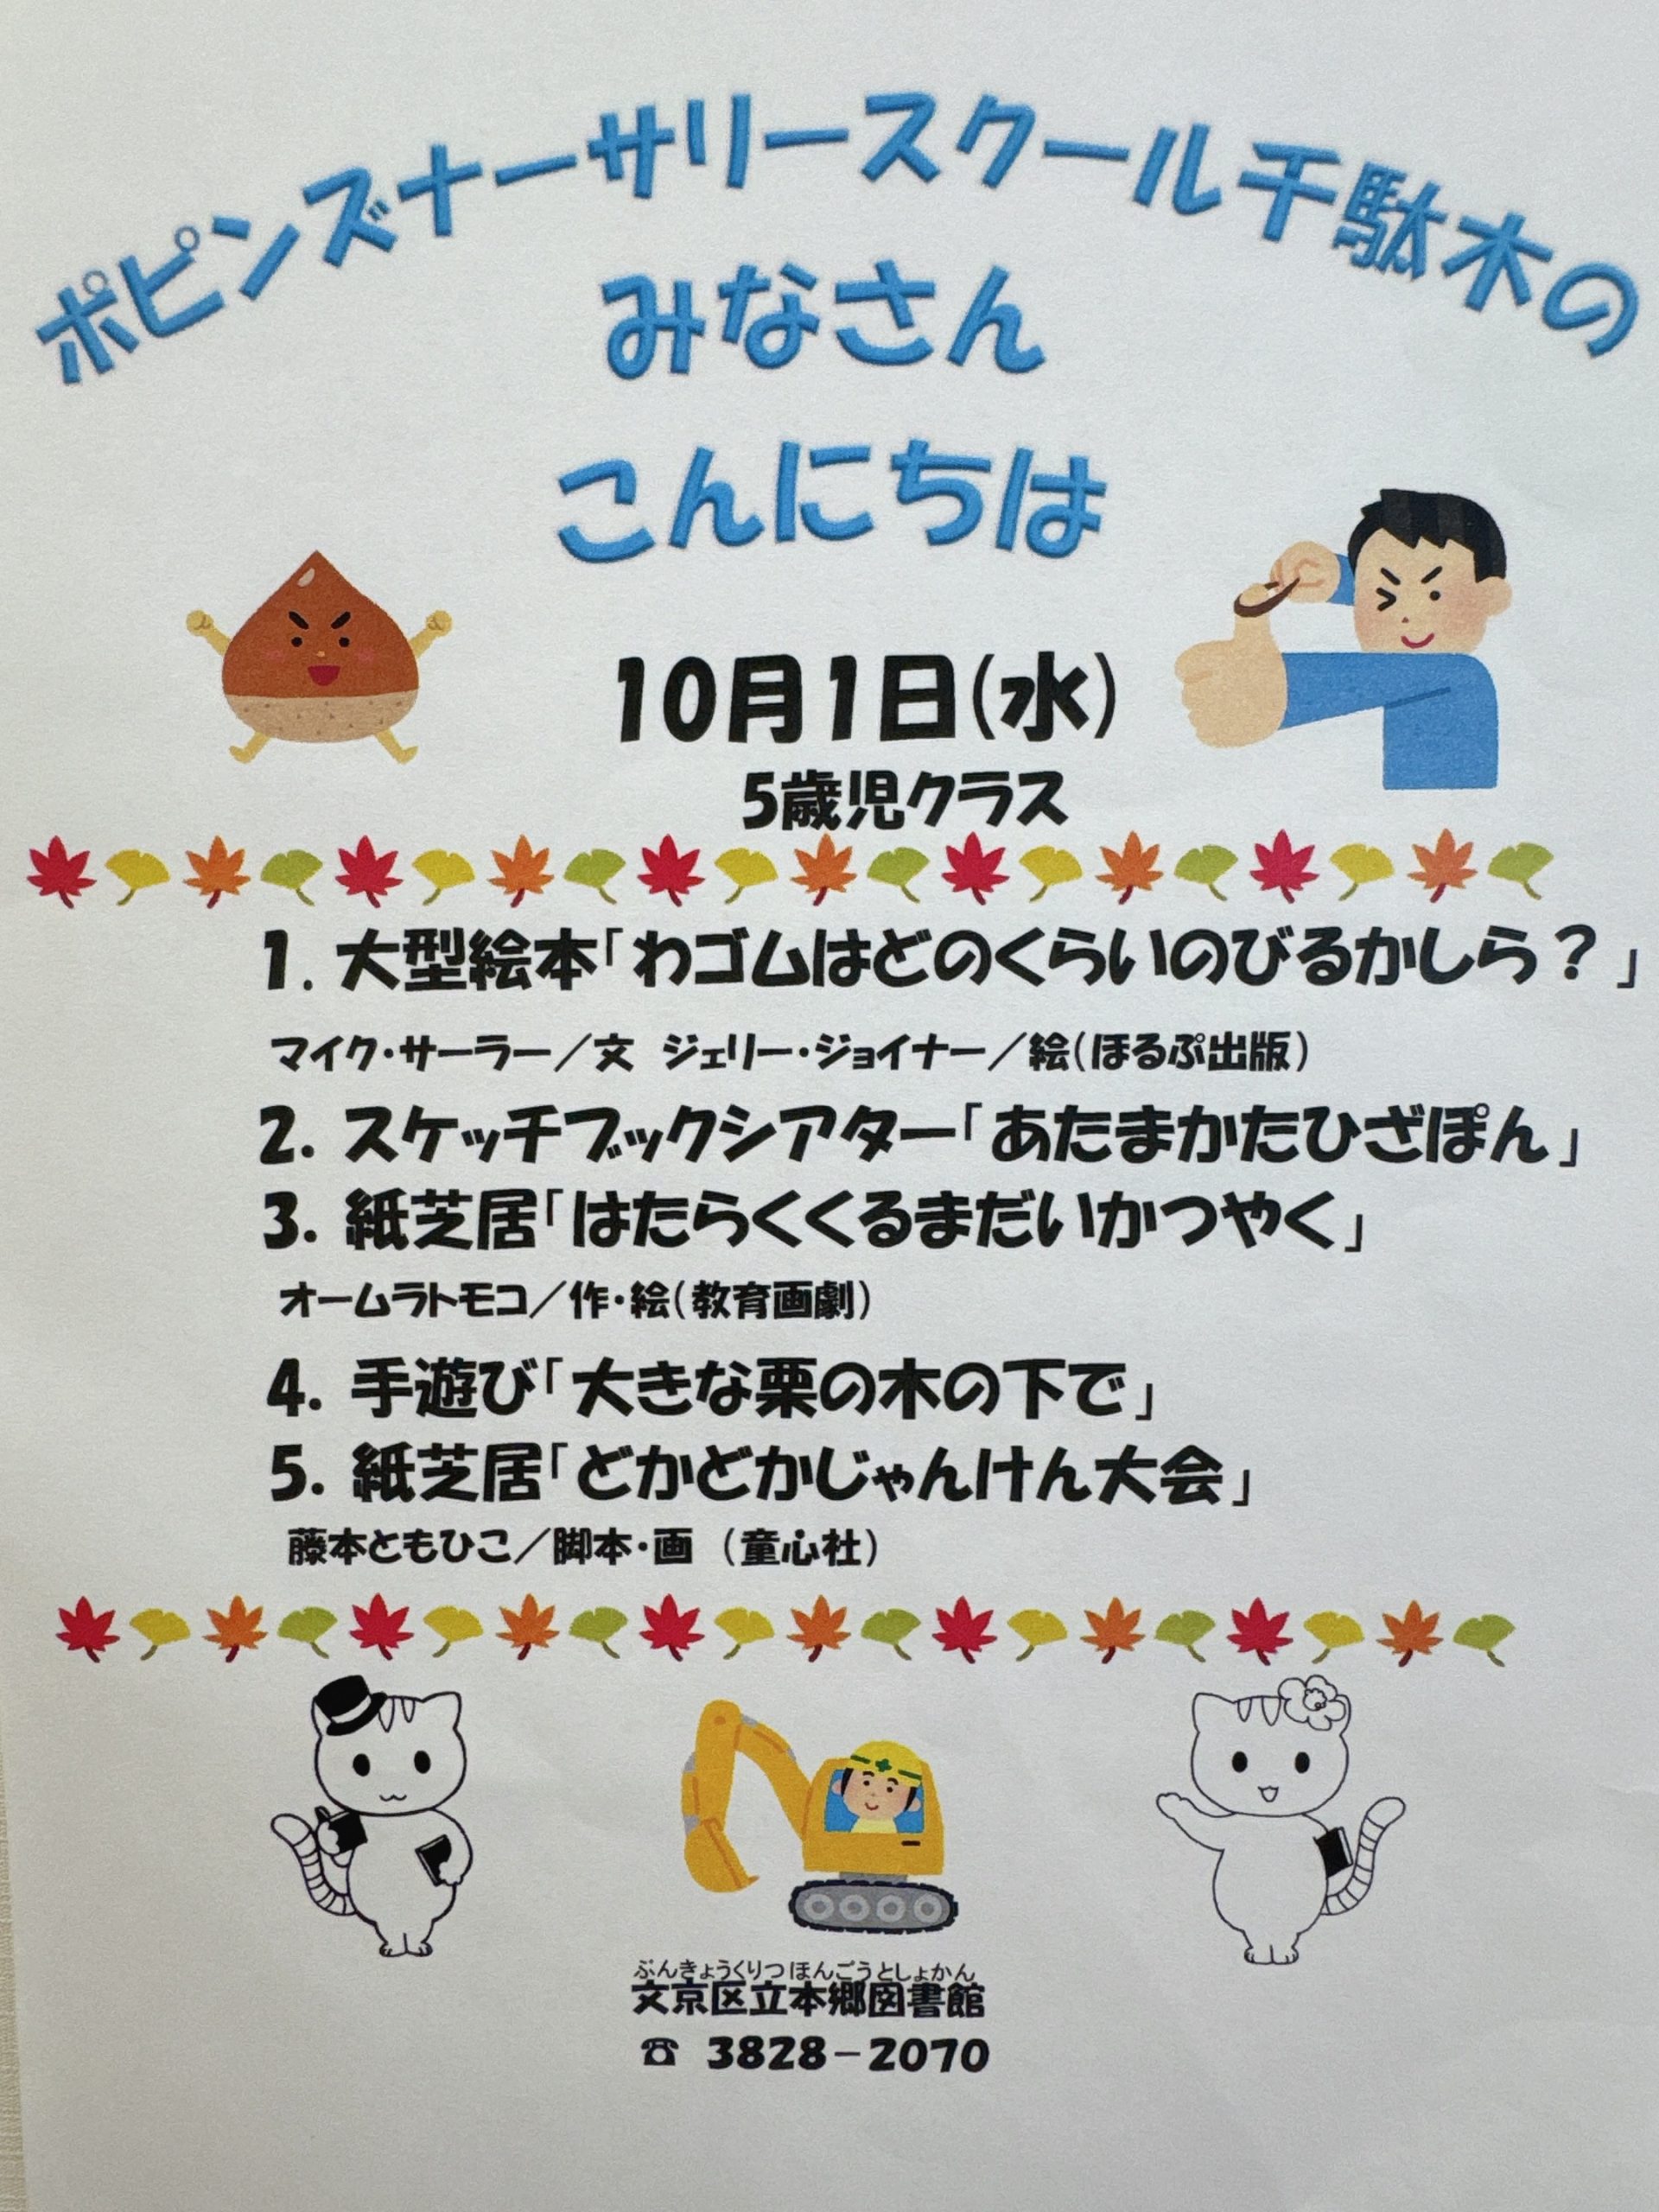 ポピンズナーサリースクール千駄木の
みなさん
こんにちは
10月1日(水)
5歳児クラス
1. 大型絵本「わゴムはどのくらいのびるかしら？」
マイク・サーラー／文 ジェリー・ジョイナー／絵(ほるぷ出版)
2. スケッチブックシアター「あたまかたひざぽん」
3. 紙芝居「はたらくくるまだいかつやく」
オームラトモコ／作・絵(教育画劇)
4. 手遊び「大きな栗の木の下で」
5. 紙芝居「どかどかじゃんけん大会」
藤本ともひこ／脚本・画 (童心社)
ぶんきょうくりつほんごうとしょかん
文京区立本郷図書館
☎ 3828-2070